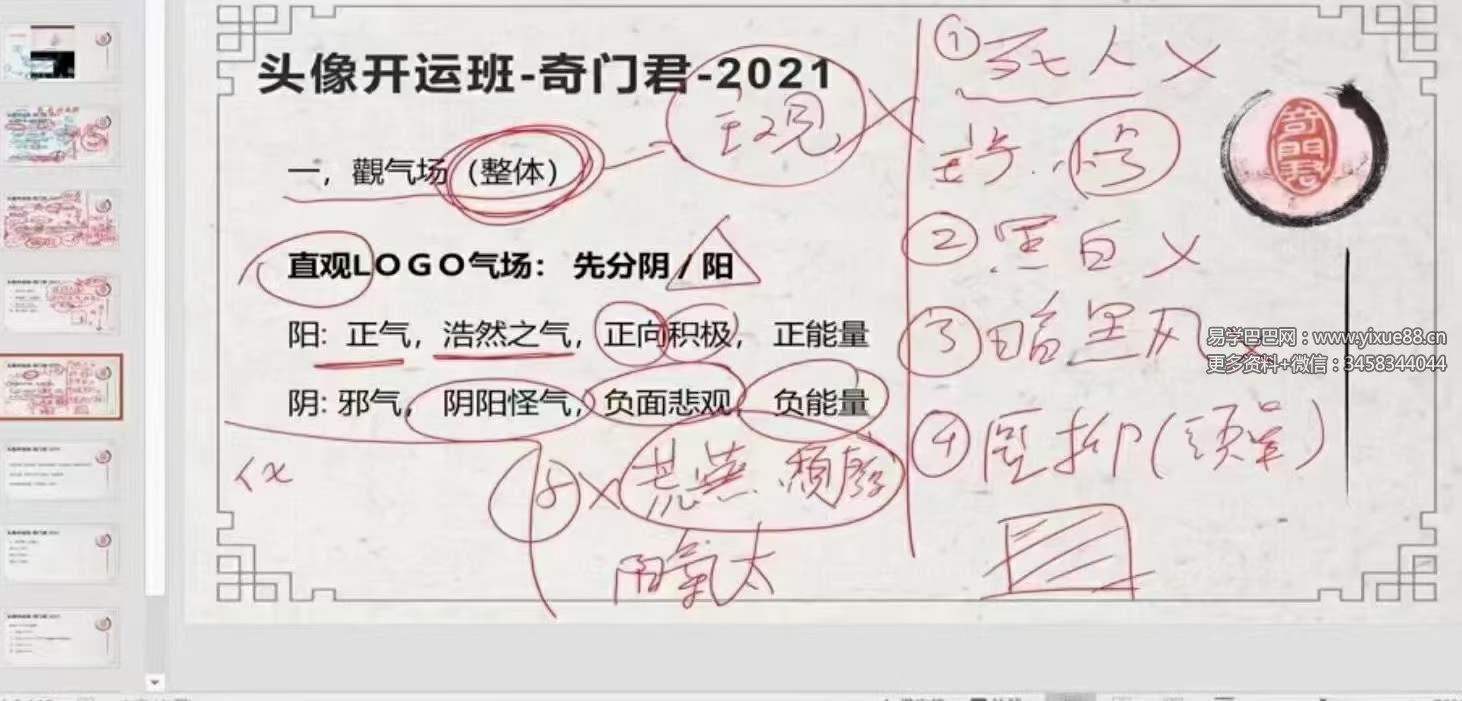 头像开运班-奇门君-2021
一，觀气场（整体）
主观
直观LOGO气场： 先分阴/阳
阳: 正气，浩然之气，正向积极， 正能量
阴: 邪气， 阴阳怪气，负面悲观， 负能量
荒蕪 頹廢
陽氣太
① 死人 X
② 黑白 X
③ 暗黑风
④ 壓抑(頭单)
奇門君
易学巴巴网：www.yixue88.cn
更多资料+微信：3458344044